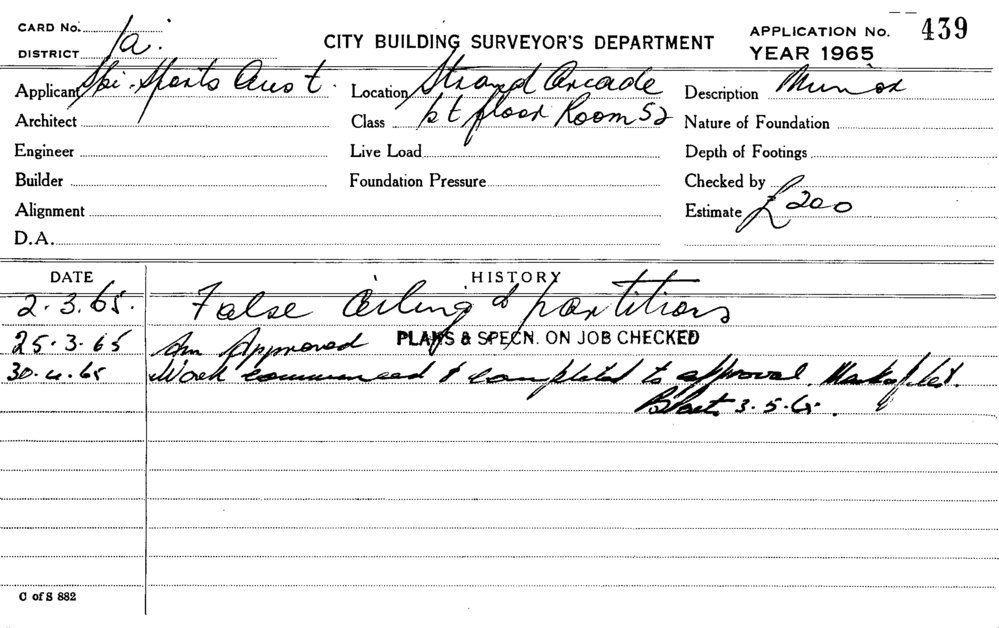 CARD No.
DISTRICT 1a.
CITY BUILDING SURVEYOR'S DEPARTMENT
APPLICATION No. 439
YEAR 1965
Applicant Ski-Sports Aust. Location Strand Arcade Description Minor
Architect Class 1st floor Room 52 Nature of Foundation
Engineer Live Load Depth of Footings
Builder Foundation Pressure Checked by
Alignment Estimate £200
D.A.
DATE HISTORY
2.3.65. False Ceiling & partitions
25.3.65 Approved PLANS & SPECN. ON JOB CHECKED
30.4.65 Work commenced & completed to approval.
3.5.65.
C of S 882